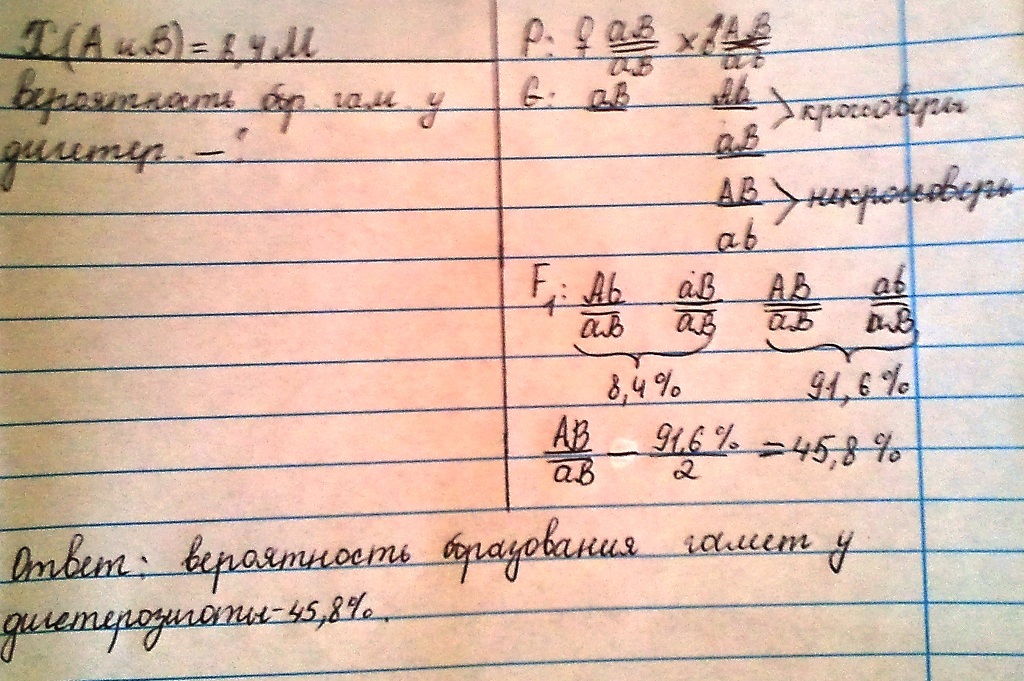 I (A и B) = 8,4 М
Вероятность обр. гам. у
дигетер. — ?
P: ♀ aB/aB × ♂ AB/ab
G: aB Ab > кроссоверы
aB
AB > некроссоверы
ab
F1: Ab/aB aB/aB AB/aB ab/aB
8,4% 91,6%
AB/aB — 91,6%/2 = 45,8%
Ответ: вероятность образования гамет у
дигетерозиготы - 45,8%.